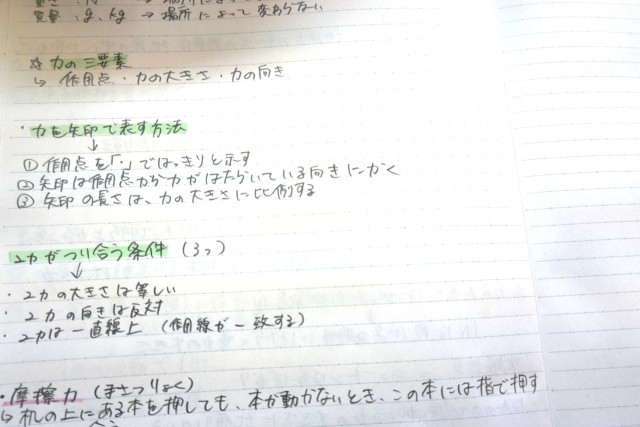 質量:g、kg → 場所によって変わらない
☆ 力の三要素
↳ 作用点・力の大きさ・力の向き
・力を矢印で表す方法
↓
① 作用点を「・」ではっきりと示す
② 矢印は作用点から力がはたらいている向きにかく
③ 矢印の長さは、力の大きさに比例する
2力がつり合う条件(3つ)
↓
・2力の大きさは等しい
・2力の向きは反対
・2力は一直線上(作用線が一致する)
・摩擦力(まさつりょく)
↳ 机の上にある本を押しても、本が動かないとき、この本には指で押す